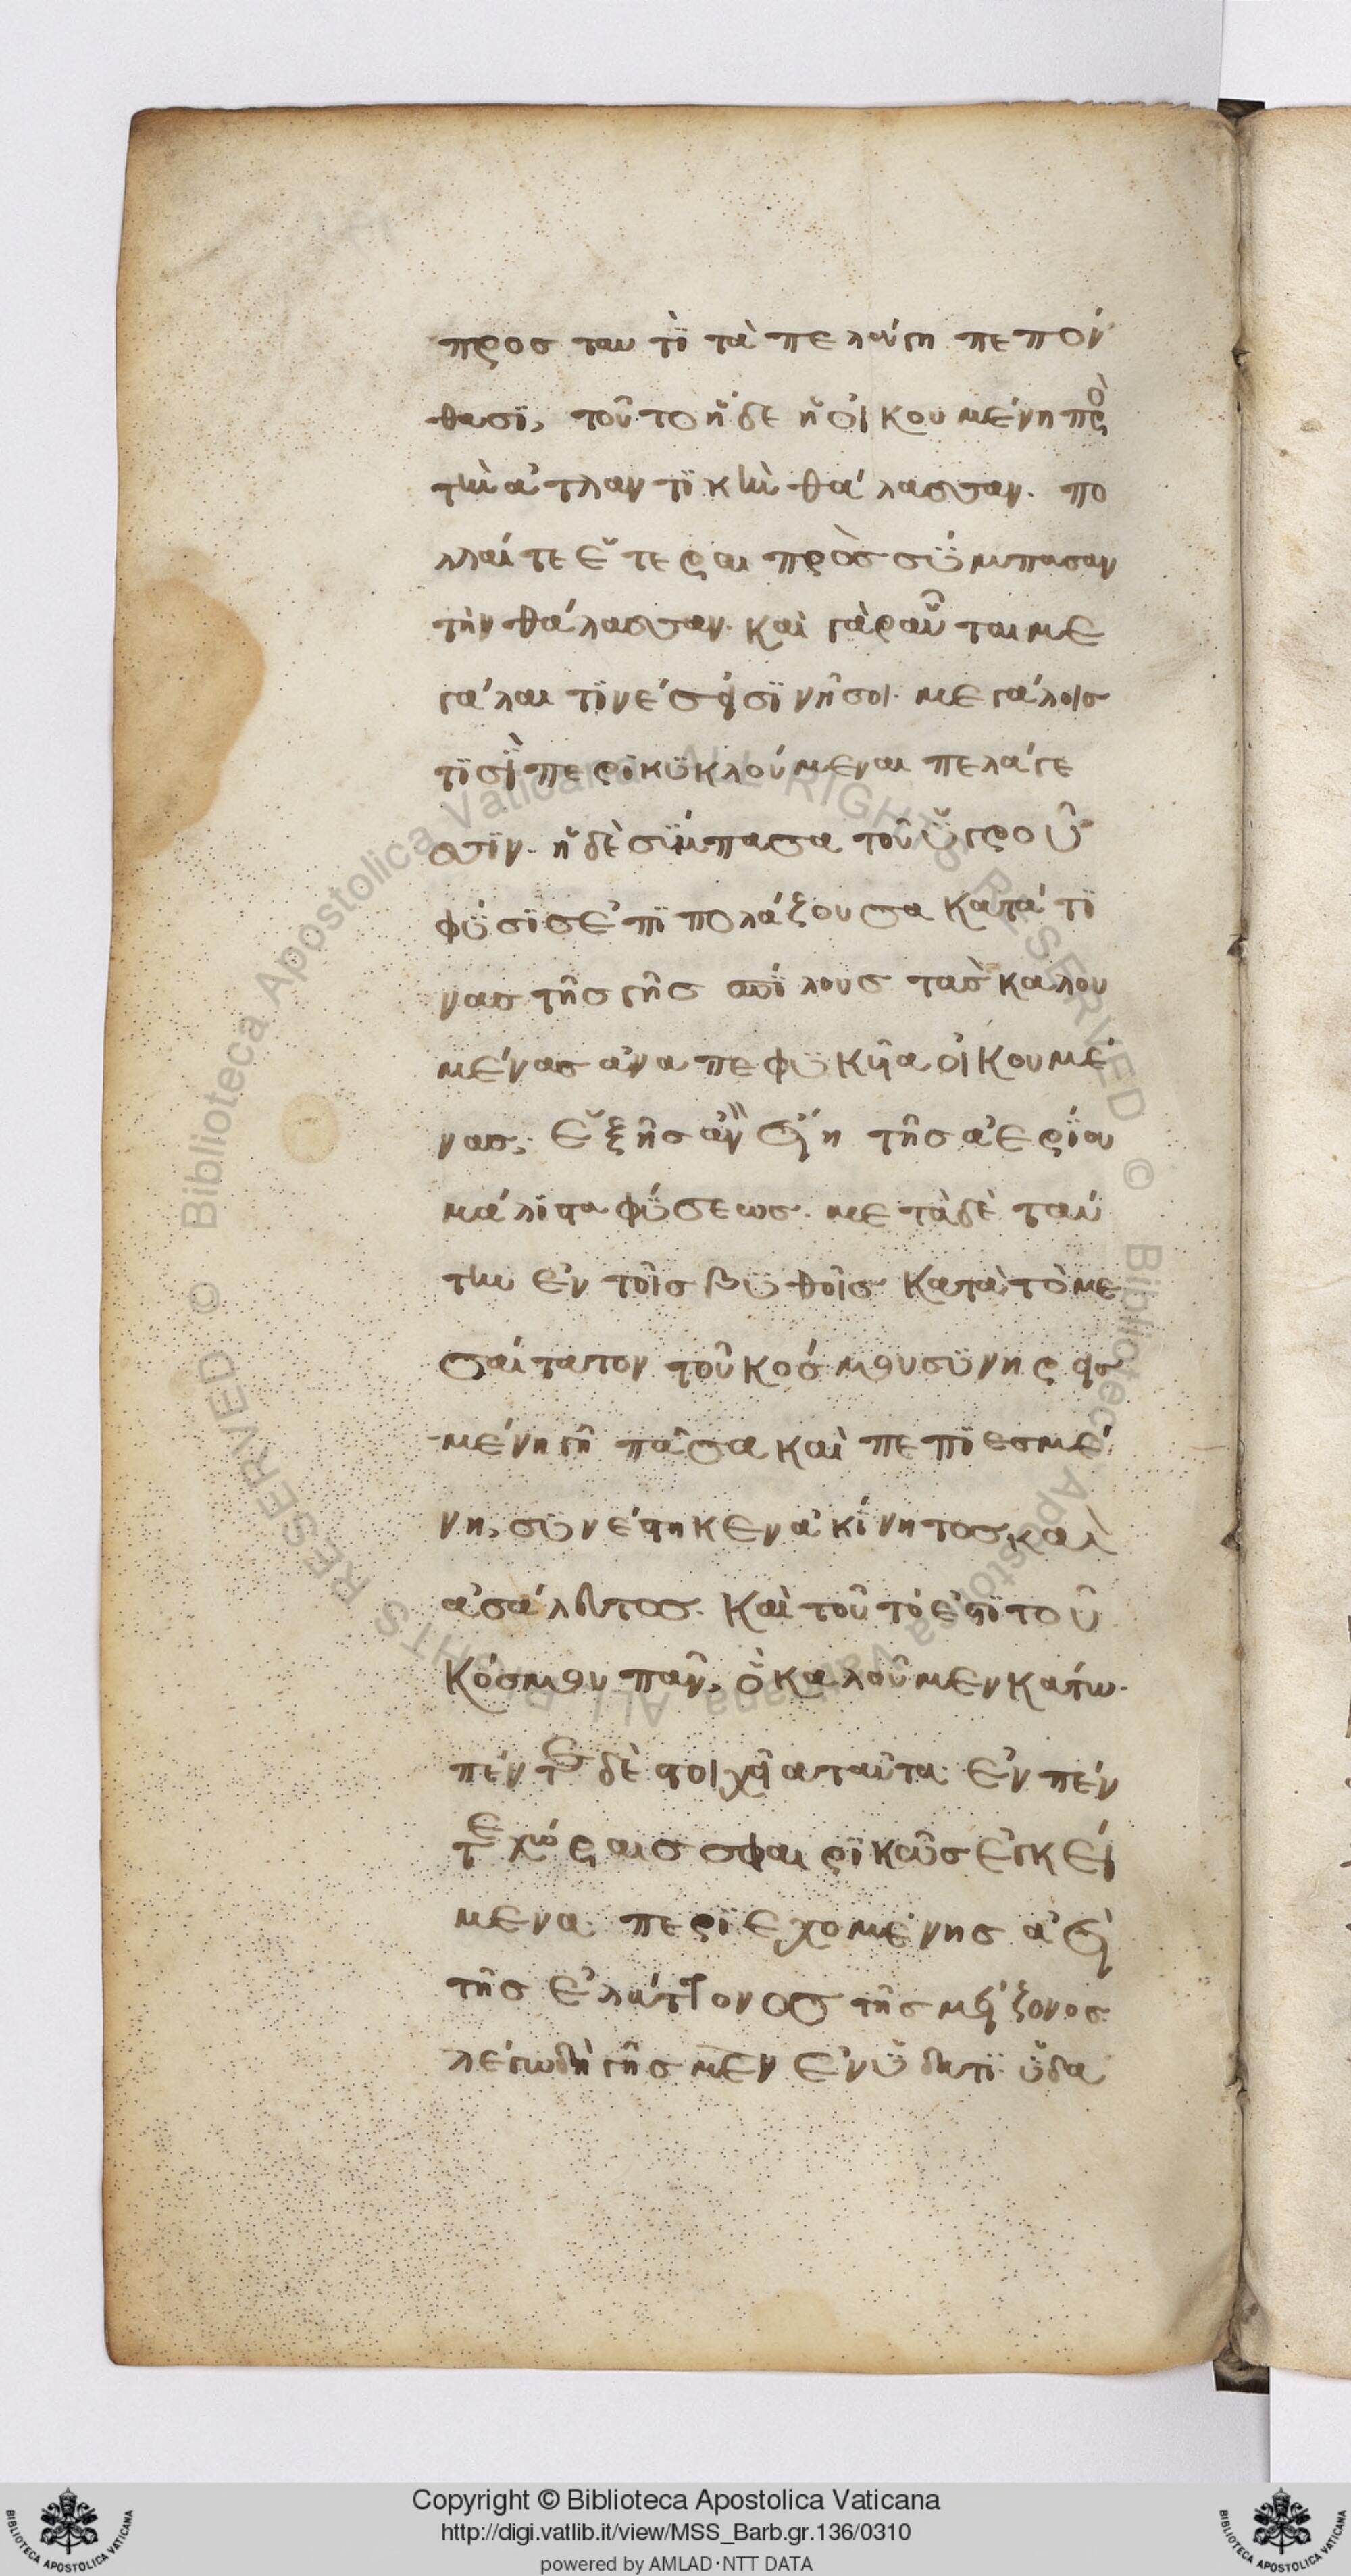 προς ταυτὶ τὰ πελάγη πεπόν
θασι, τοῦτο ἥδε ἡ οἰκουμένη πρὸ
τὴν ἀτλαντικὴν θάλασσαν. πο
λλαί τε ἕτεραι πρὸς σύμπασαν
τὴν θάλασσαν. καὶ γὰρ αὗται με
γάλαι τινές εἰσι νῆσοι. μεγάλοις
τισὶ περικυκλούμεναι πελάγε
σιν. ἡ δὲ σύμπασα τοῦ ὑγροῦ
φύσις ἐπιπολάζουσα κατά τι
νας τῆς γῆς σπίλους τὰς καλου
μένας ἀναπεφυκεῖα οἰκουμέ
νας, ἑξῆς ἂν εἴη τῆς ἀερίου
μάλιστα φύσεως. μετὰ δὲ ταύ
την ἐν τοῖς βυθοῖς κατὰ τὸ με
σαίτατον τοῦ κόσμου συνηρεισ
μένη γῆ πᾶσα καὶ πεπιεσμέ
νη, συνέστηκεν ἀκίνητος καὶ
ἀσάλευτος. καὶ τοῦτό ἐστι τοῦ
κόσμου πᾶν, ὃ καλοῦμεν κάτω.
πέντε δὲ στοιχεῖα ταῦτα ἐν πέν
τε χώραις σφαιρικῶς ἐγκεί
μενα περιεχομένης ἀεὶ
τῆς ἐλάττονος τῆς μείζονος
λέγω δὴ γῆς μὲν ἐν ὕδατι ὕδα
Copyright © Biblioteca Apostolica Vaticana
http://digi.vatlib.it/view/MSS_Barb.gr.136/0310
powered by AMLAD·NTT DATA